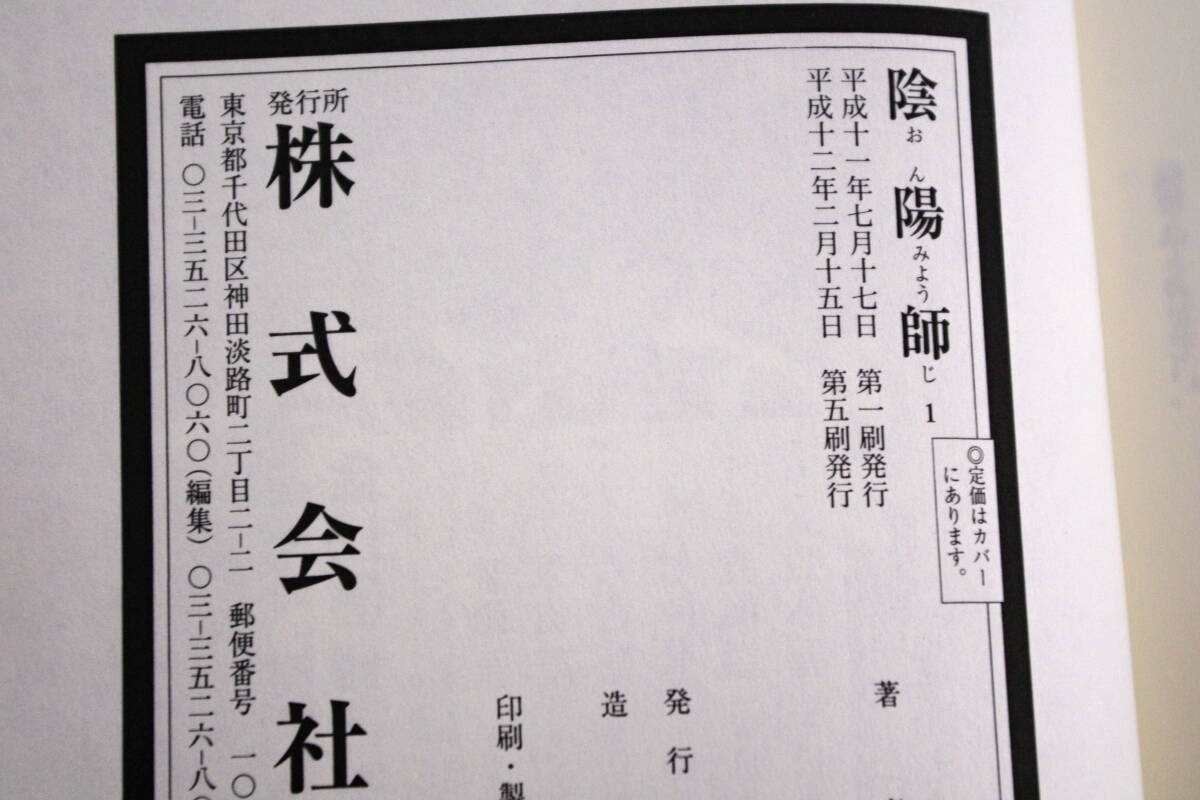 陰陽師 1
おんみようじ
◎定価はカバー
にあります。
平成十一年七月十七日 第一刷発行
平成十二年二月十五日 第五刷発行
著
発行
造
印刷・製
発行所
株式会社
東京都千代田区神田淡路町二丁目二−二 郵便番号 一〇
電話 〇三−三五二六−八〇六〇(編集) 〇三−三五二六−八〇